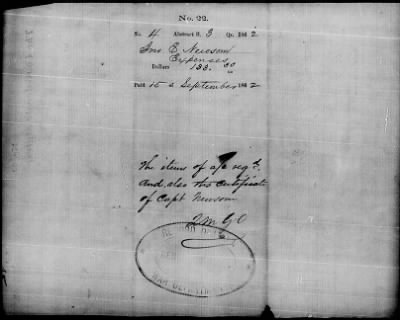 No. 22.
No. 4 Abstract B. 3 Qr. 186 2.
Jno E Newsom
Expenses
Dollars 133.50
Paid 15 September 186 2
The items of a/c reqd.
And also the certificate
of Capt Newsom
QMGO